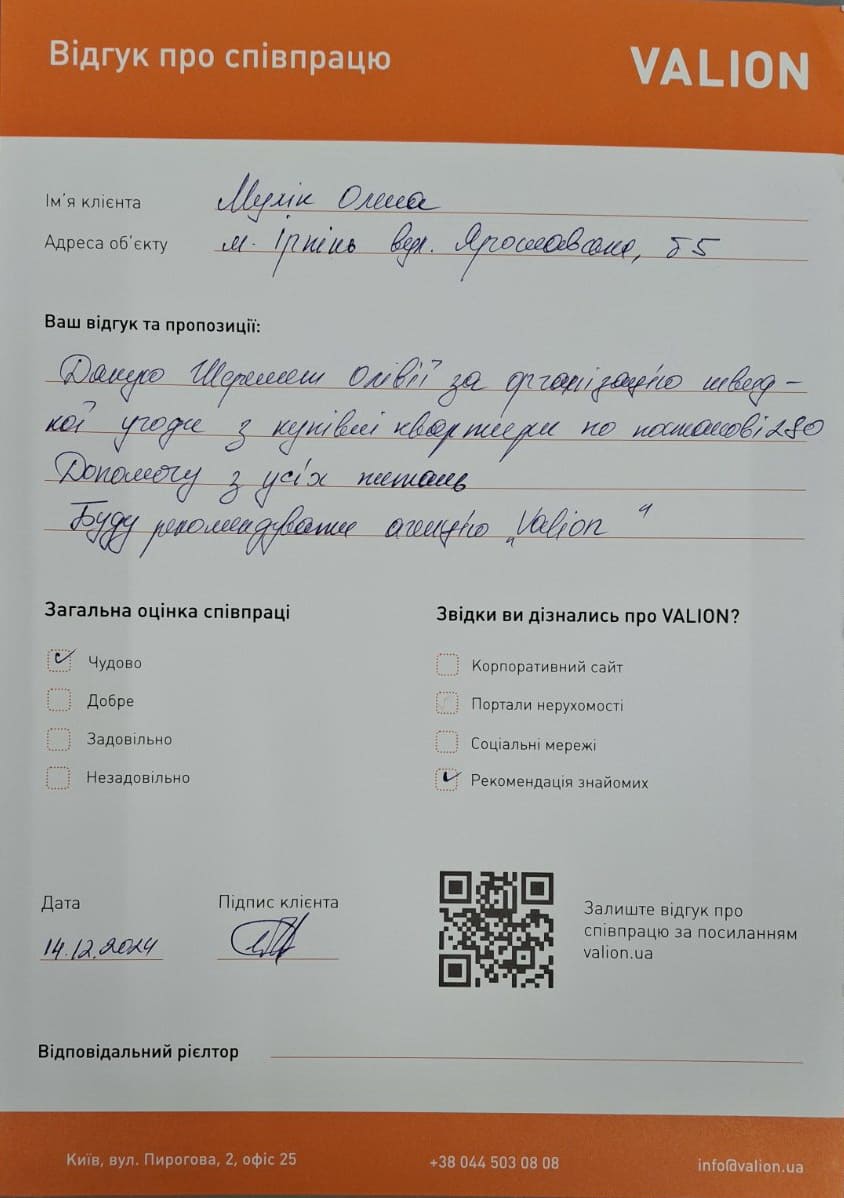 Відгук про співпрацю
VALION
Ім'я клієнта Мулік Олена
Адреса об'єкту м. Ірпінь вул. Ярославська, 55
Ваш відгук та пропозиції:
Дякую Шеремет Олівії за організацію швид-
кої угоди з купівлі квартири по постанові 280
Допомогу з усіх питань
Буду рекомендувати агенцію „Valion“
Загальна оцінка співпраці
Чудово
Добре
Задовільно
Незадовільно
Звідки ви дізнались про VALION?
Корпоративний сайт
Портали нерухомості
Соціальні мережі
Рекомендація знайомих
Дата
14.12.2024
Підпис клієнта
Залиште відгук про
співпрацю за посиланням
valion.ua
Відповідальний рієлтор
Київ, вул. Пирогова, 2, офіс 25
+38 044 503 08 08
info@valion.ua